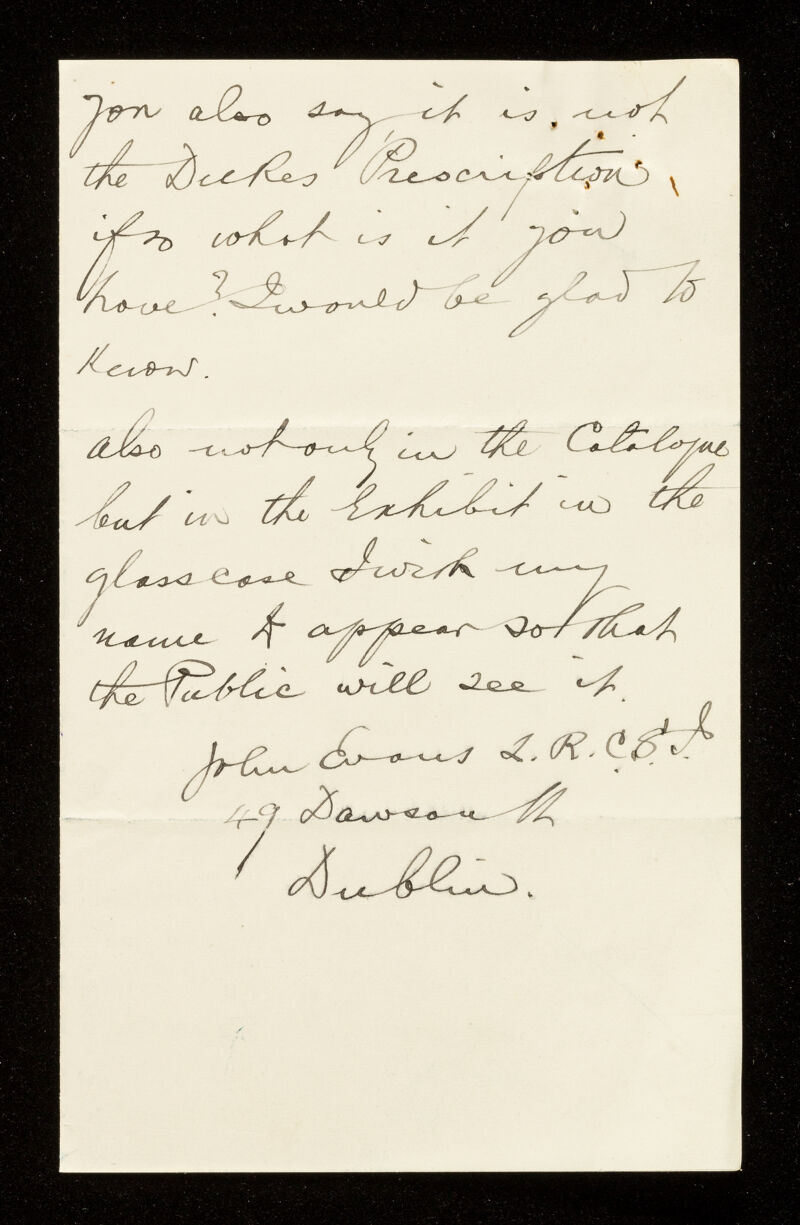 you also say it is not
the Dukes Prescription
if so what is it you
have? I would be glad to
know.
also not only in the Catalogue
but in the Exhibit in the
glass case I wish my
name to appear so that
the Public will see it.
John Evans L.R.C.S.I.
49 Dawson St
Dublin.